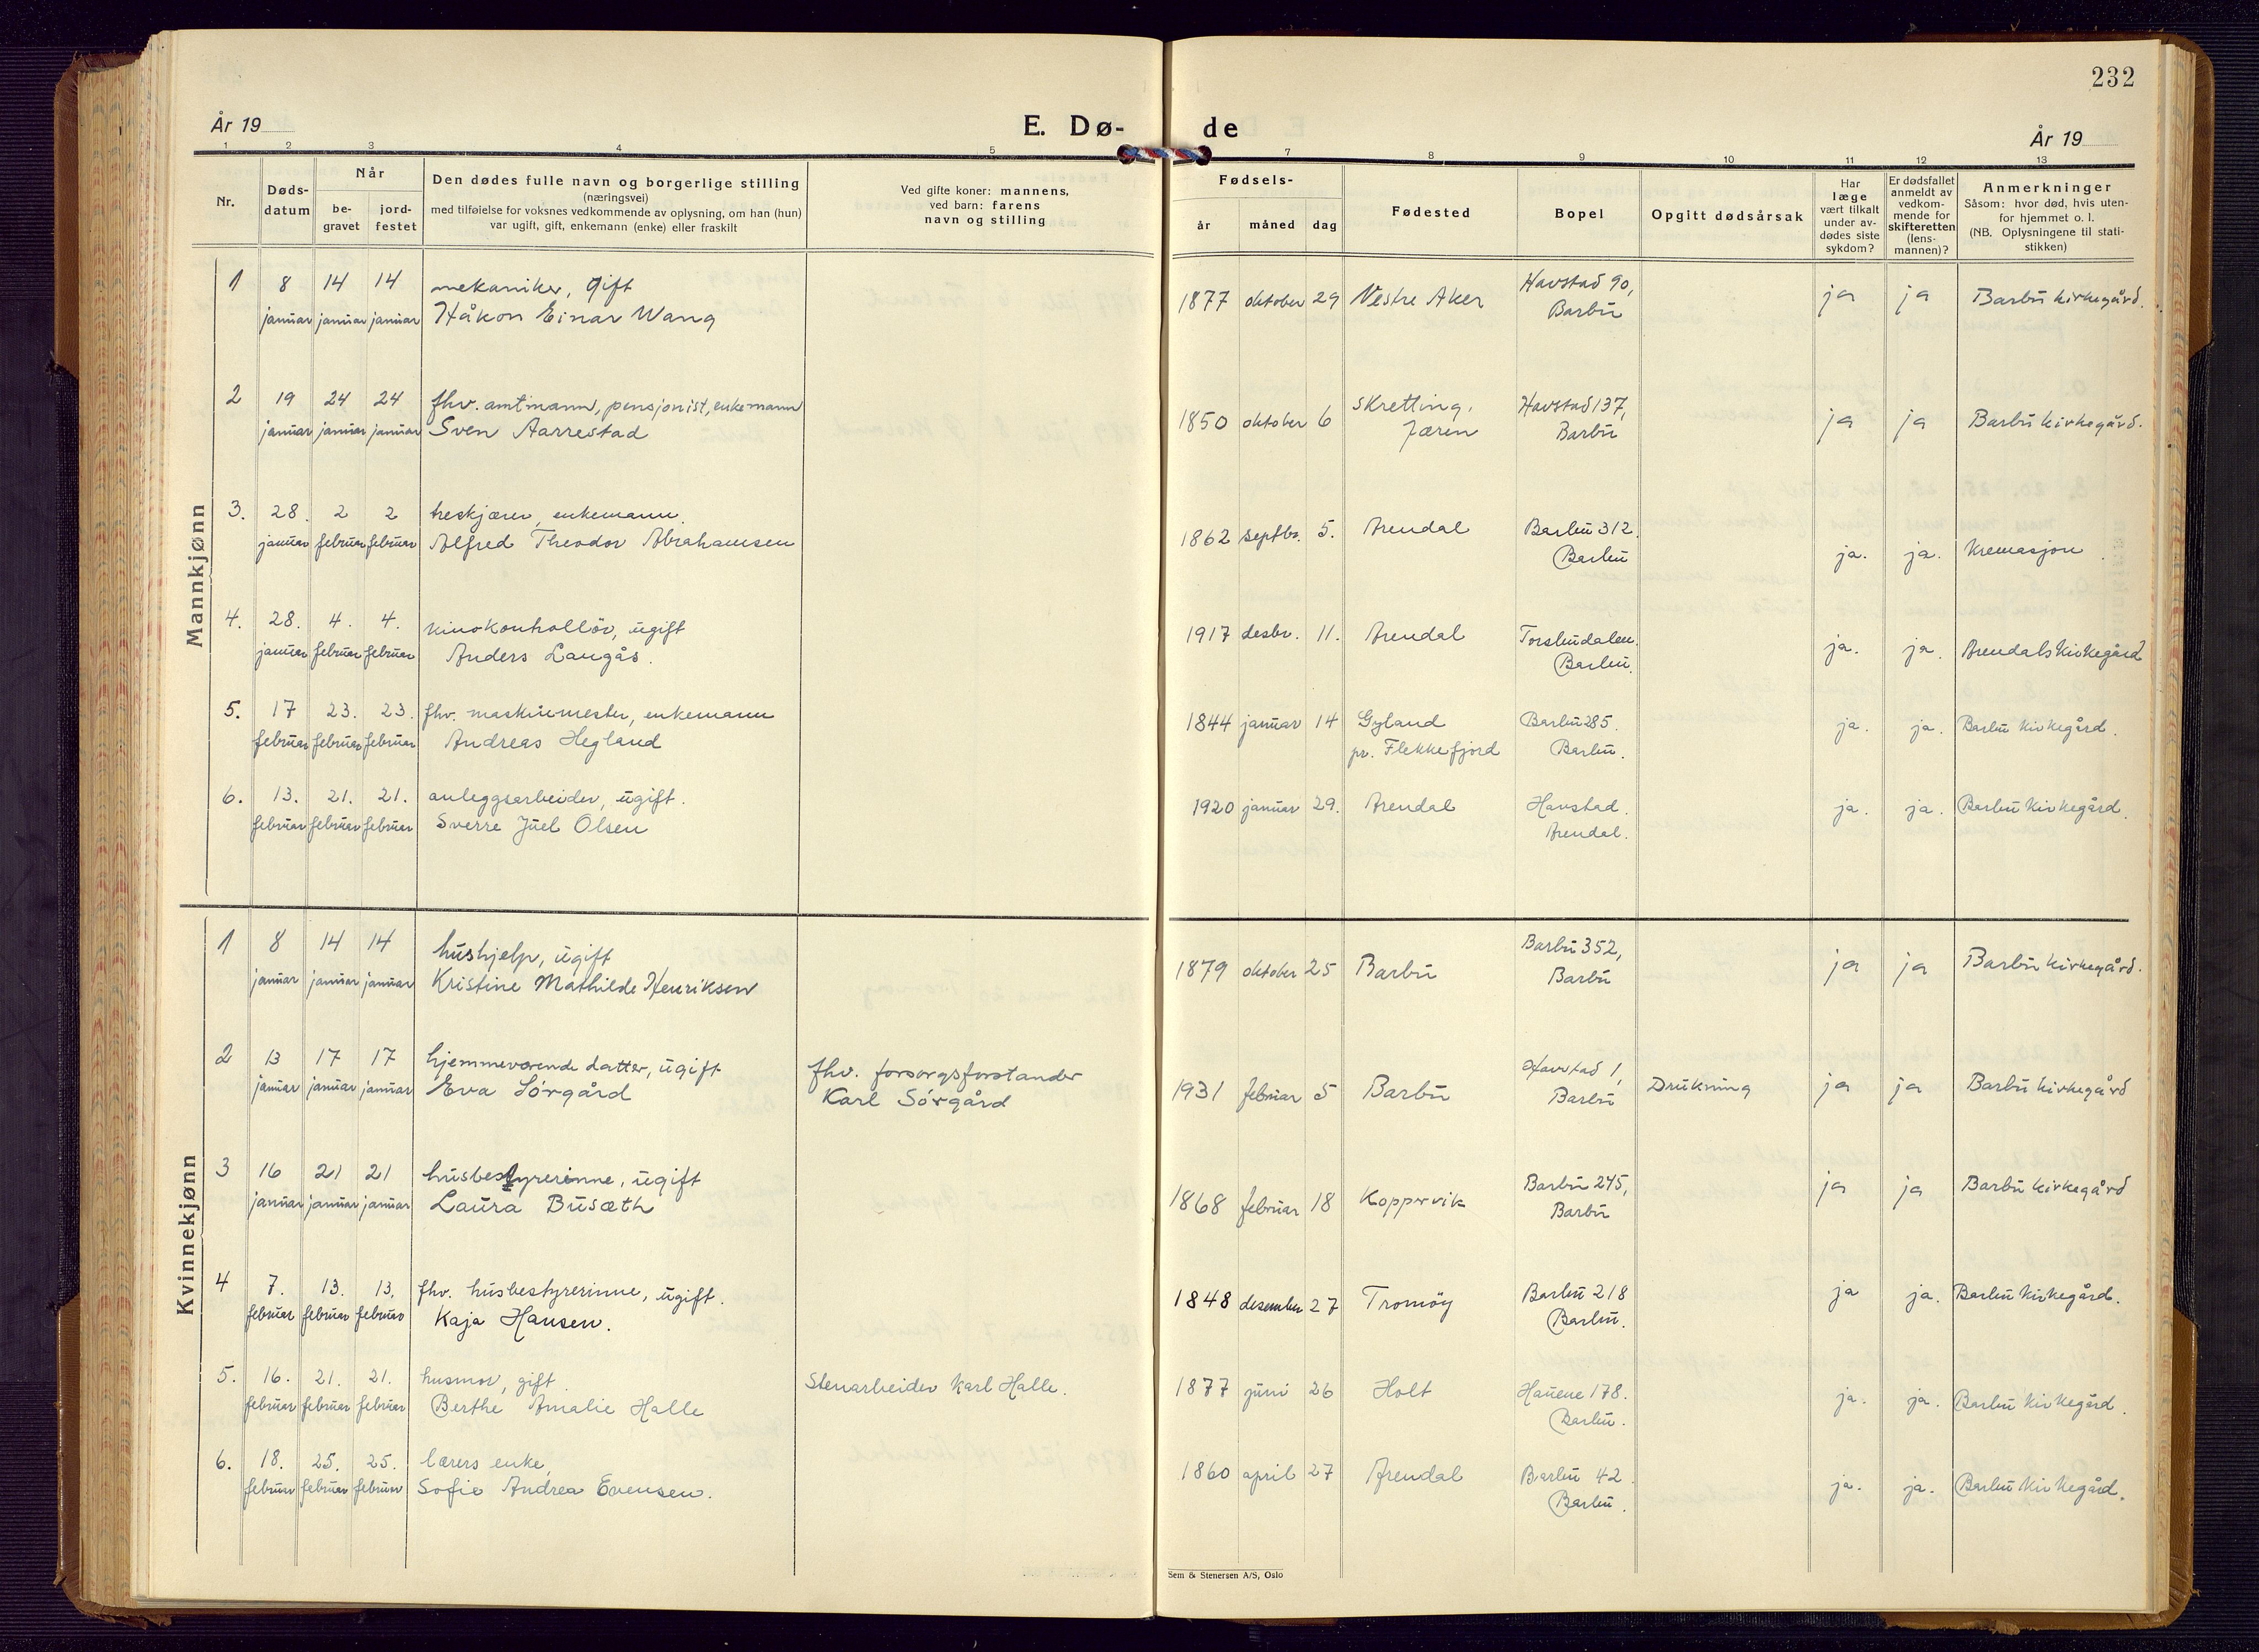 232
År 19
E. Dø-
de
År 19
1 2 3 4 5 7 8 9 10 11 12 13
Nr.
Døds-
datum
Når
be-
gravet
jord-
festet
Den dødes fulle navn og borgerlige stilling
(næringsvei)
med tilføielse for voksnes vedkommende av oplysning, om han (hun)
var ugift, gift, enkemann (enke) eller fraskilt
Ved gifte koner: mannens,
ved barn: farens
navn og stilling
Fødsels-
år måned dag
Fødested
Bopel
Opgitt dødsårsak
Har
læge
vært tilkalt
under av-
dødes siste
sykdom?
Er dødsfallet
anmeldt av
vedkom-
mende for
skifteretten
(lens-
mannen)?
Anmerkninger
Såsom: hvor død, hvis uten-
for hjemmet o. l.
(NB. Oplysningene til stati-
stikken)
Mannkjønn
1 8 14 14 mekaniker, gift
januar januar januar Håkon Einar Wang
1877 oktober 29 Vestre Aker Havstad 90, ja ja Barbu kirkegård.
Barbu
2 19 24 24 fhv. amtmann, pensjonist, enkemann
januar januar januar Sven Aarrestad
1850 oktober 6 Skretting, Havstad 137, ja ja Barbu kirkegård.
Jæren Barbu
3. 28. 2 2 treskjærer, enkemann.
januar februar februar Alfred Theodor Abrahamsen
1862 septbr. 5. Arendal Barbu 312. ja. ja. Kremasjon.
Barbu
4. 28. 4. 4. kinokontrollör, ugift
januar februar februar Anders Langås.
1917 desbr. 11. Arendal Torsbudalen. ja. ja. Arendals kirkegård
Barbu.
5. 17 23. 23. fhv. maskinmester, enkemann
februar februar februar Andreas Hegland
1844 januar 14 Gyland Barbu 285. ja. ja. Barbu kirkegård.
pr. Flekkefjord Barbu.
6. 13. 21. 21. anleggsarbeider, ugift.
februar februar februar Sverre Juel Olsen
1920 januar 29. Arendal Havstad. ja. ja. Barbu kirkegård.
Arendal.
Kvinnekjønn
1 8 14 14 hushjelp, ugift
januar januar januar Kristine Mathilde Henriksen
1879 oktober 25 Barbu Barbu 352, ja ja Barbu kirkegård.
Barbu
2 13 17 17 hjemmeværende datter, ugift
januar januar januar Eva Sörgård
fhv. forsorgsforstander
Karl Sörgård
1931 februar 5 Barbu Havstad 1, Drukning ja ja Barbu kirkegård
Barbu
3 16 21 21 husbestyrerinne, ugift
januar januar januar Laura Busæth
1868 februar 18 Koppervik Barbu 245, ja ja Barbu kirkegård
Barbu
4 7. 13. 13. fhv. husbestyrerinne, ugift.
februar februar februar Kaja Hansen.
1848 desember 27 Tromöy Barbu 218 ja ja. Barbu kirkegård.
Barbu.
5. 16. 21. 21. husmor, gift.
februar februar februar Berthe Amalie Halle
Stenarbeider Karl Halle.
1877 juni 26 Holt Hauene 178. ja. ja. Barbu kirkegård.
Barbu.
6. 18. 25. 25. lærers enke,
februar februar februar Sofie Andrea Evensen.
1860 april 27 Arendal Barbu 42. ja. ja. Barbu kirkegård.
Barbu.
Sem & Stenersen A/S, Oslo